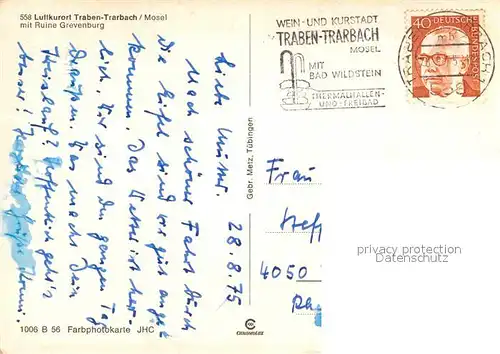 558 Luftkurort Traben-Trarbach / Mosel
mit Ruine Grevenburg
WEIN- UND KURSTADT
TRABEN-TRARBACH
MOSEL
MIT
BAD WILDSTEIN
THERMALHALLEN-
UND FREIBAD
40 DEUTSCHE
BUNDESPOST
28.8.75
Liebe Mutter.
Nach schöner Fahrt durch
die Eifel sind wir gut ange-
kommen. Das Wetter ist herr-
lich. Wir sind den ganzen Tag
draußen. Was macht Dein
Kreislauf? Hoffentlich geht's
besser! Herzliche Grüße
Gebr. Metz, Tübingen
Frau
4050
privacy protection
1006 B 56 Farbphotokarte JHC